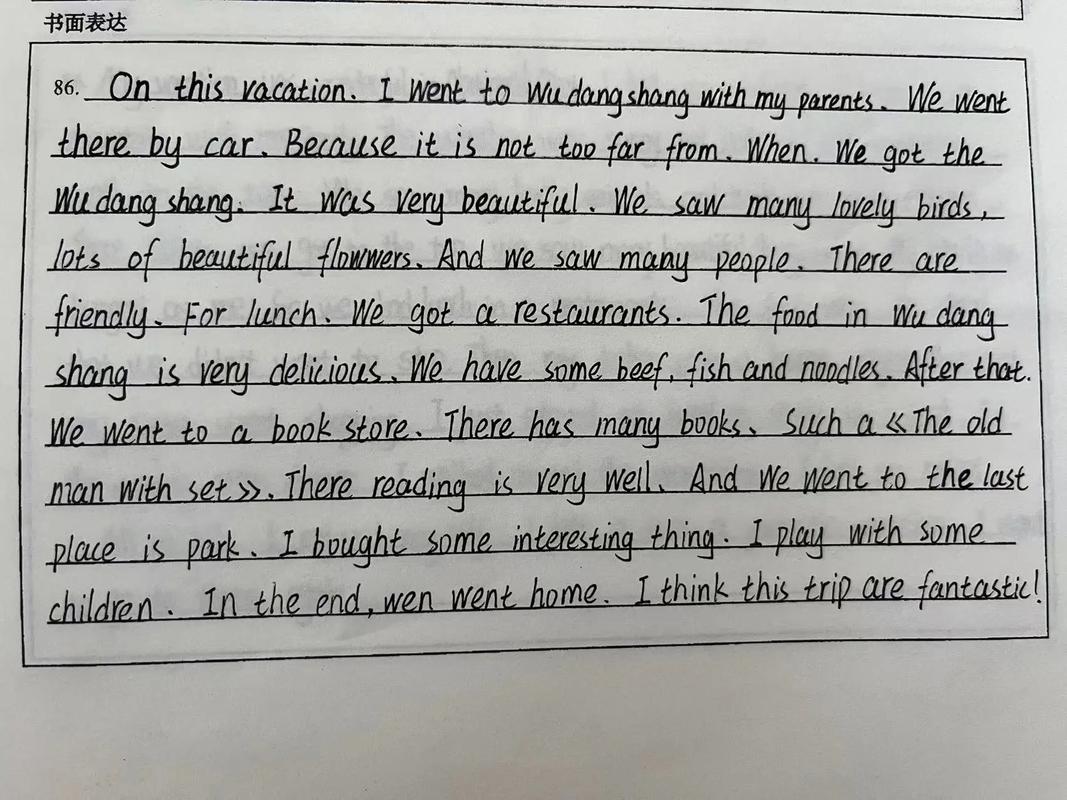 书面表达
86. On this vacation. I went to Wudangshang with my parents. We went
there by car. Because it is not too far from. When. We got the
Wudang shang. It was very beautiful. We saw many lovely birds,
lots of beautiful flowwers. And we saw many people. There are
friendly. For lunch. We got a restaurants. The food in Wu dang
shang is very delicious. We have some beef, fish and noodles. After that.
We went to a book store. There has many books. Such a 《The old
man with set》. There reading is very well. And We went to the last
place is park. I bought some interesting thing. I play with some
children. In the end, wen went home. I think this trip are fantastic!